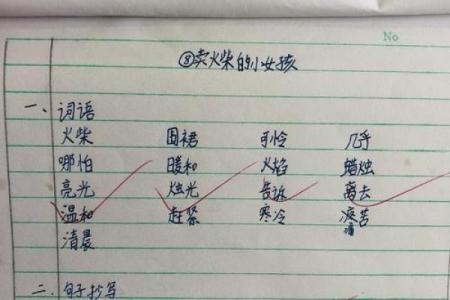 No
⑧卖火柴的小女孩
一、词语
火柴 围裙 可怜 几乎
哪怕 暖和 火焰 蜡烛
亮光 烛光 告诉 离去
温和 赶紧 寒冷 痛苦
清晨
二、句子抄写